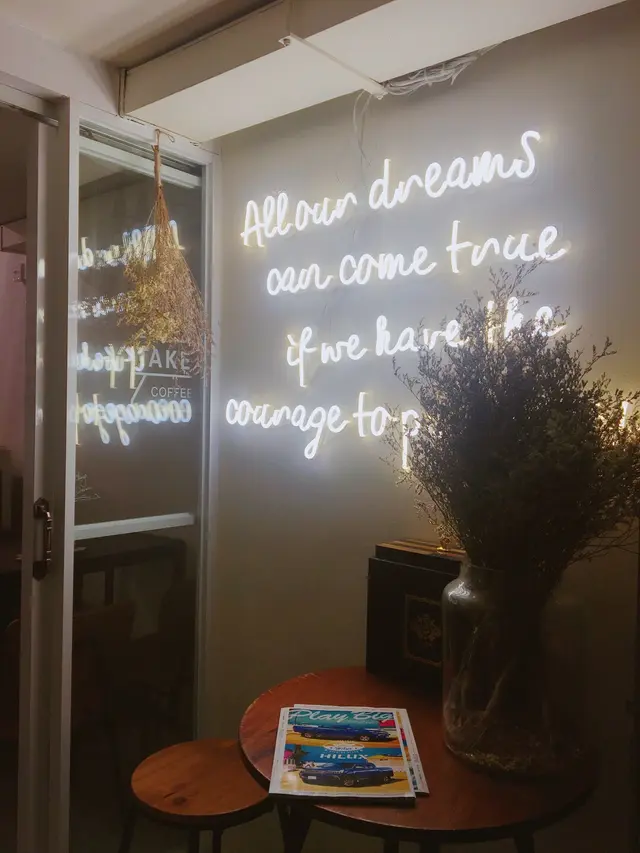 All our dreams
can come true
if we have the
courage to p
AKE
COFFEE
Play Big
HILUX